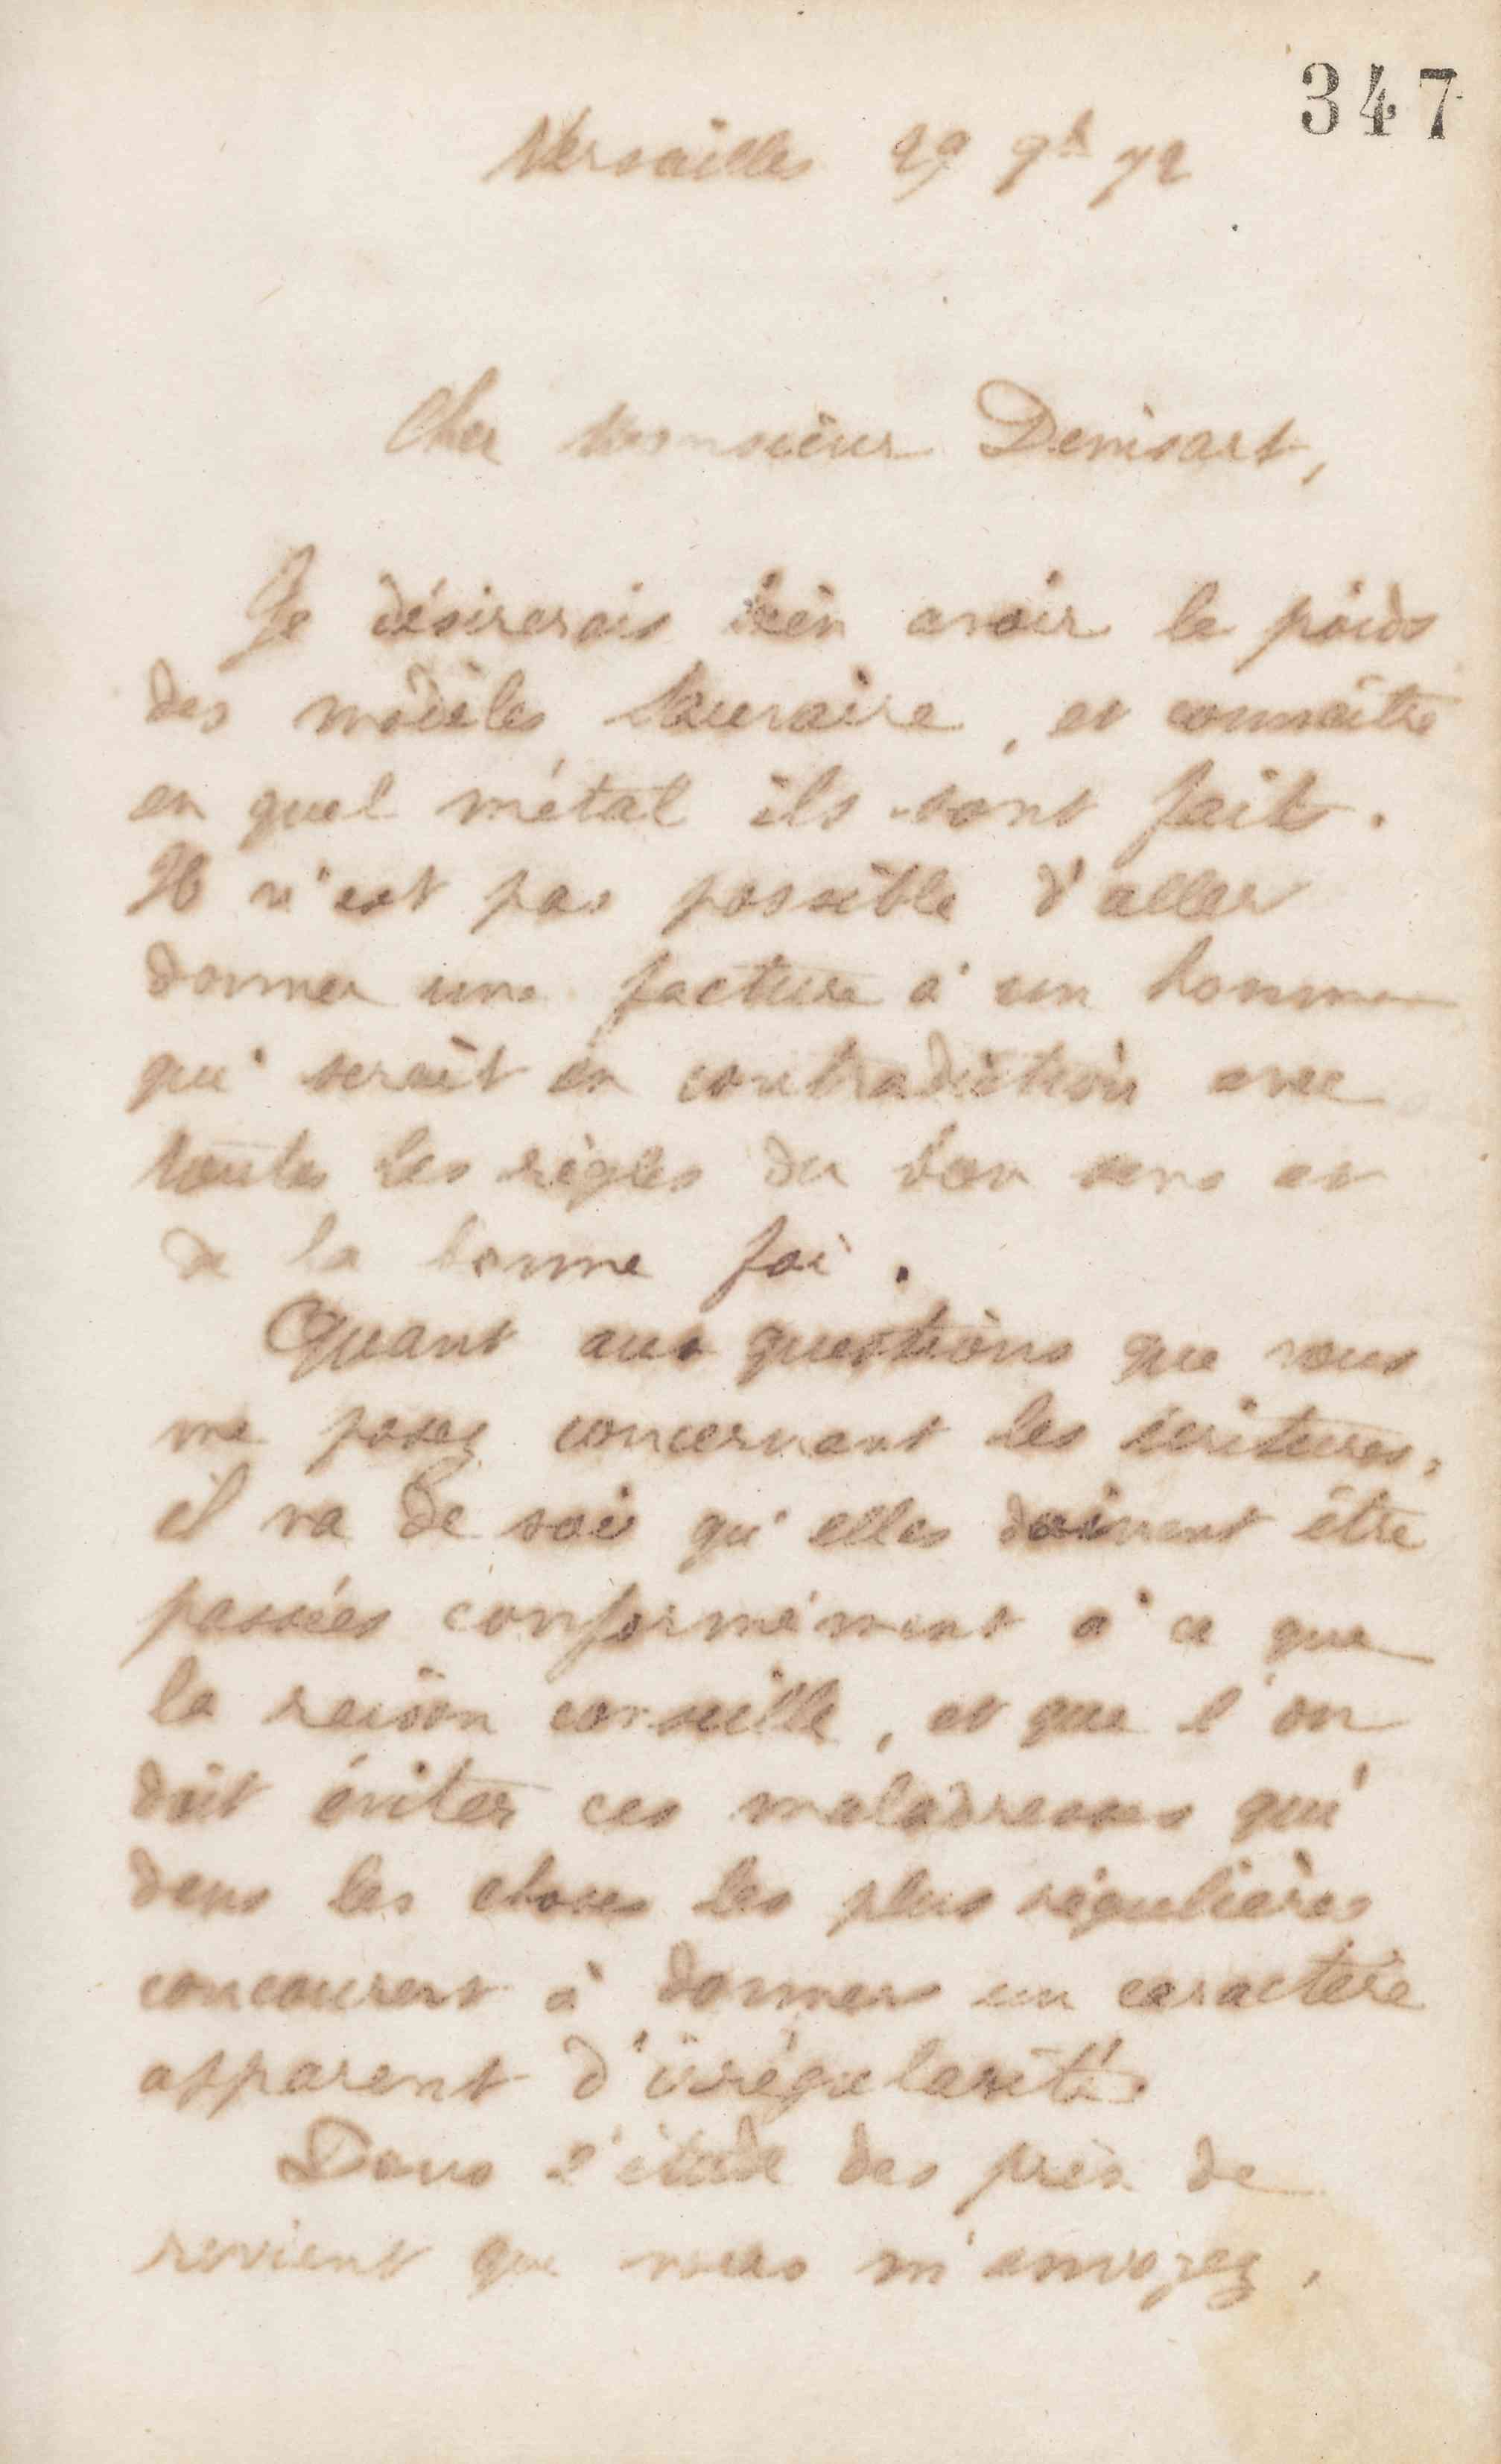 347
Versailles 29 9bre 72
Cher Monsieur Denisart,
Je désirerais bien avoir le poids
des modèles , et connaître
en quel métal ils sont fait.
Il n'est pas possible d'aller
donner une facture à un homme
qui serait en contradiction avec
toutes les règles du bon sens et
de la bonne foi.
Quant aux questions que vous
me posez concernant les écritures,
il va de soi qu'elles doivent être
passées conformément à ce que
la raison conseille, et que l'on
doit éviter ces maladresses qui
dans les choses les plus régulières
concourent à donner un caractère
apparent d'irrégularité.
Dans l'étude des prix de
revient que vous m'envoyez,